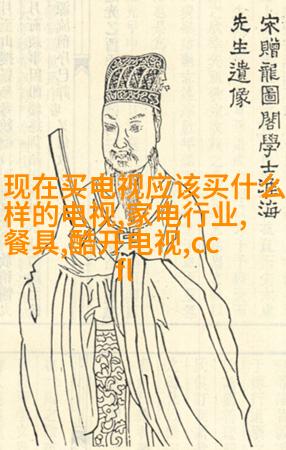 宋贈龍圖閣學士海
先生遺像
现在买电视应该买什么
样的电视,家电行业,
餐具,酷开电视,cc
fl